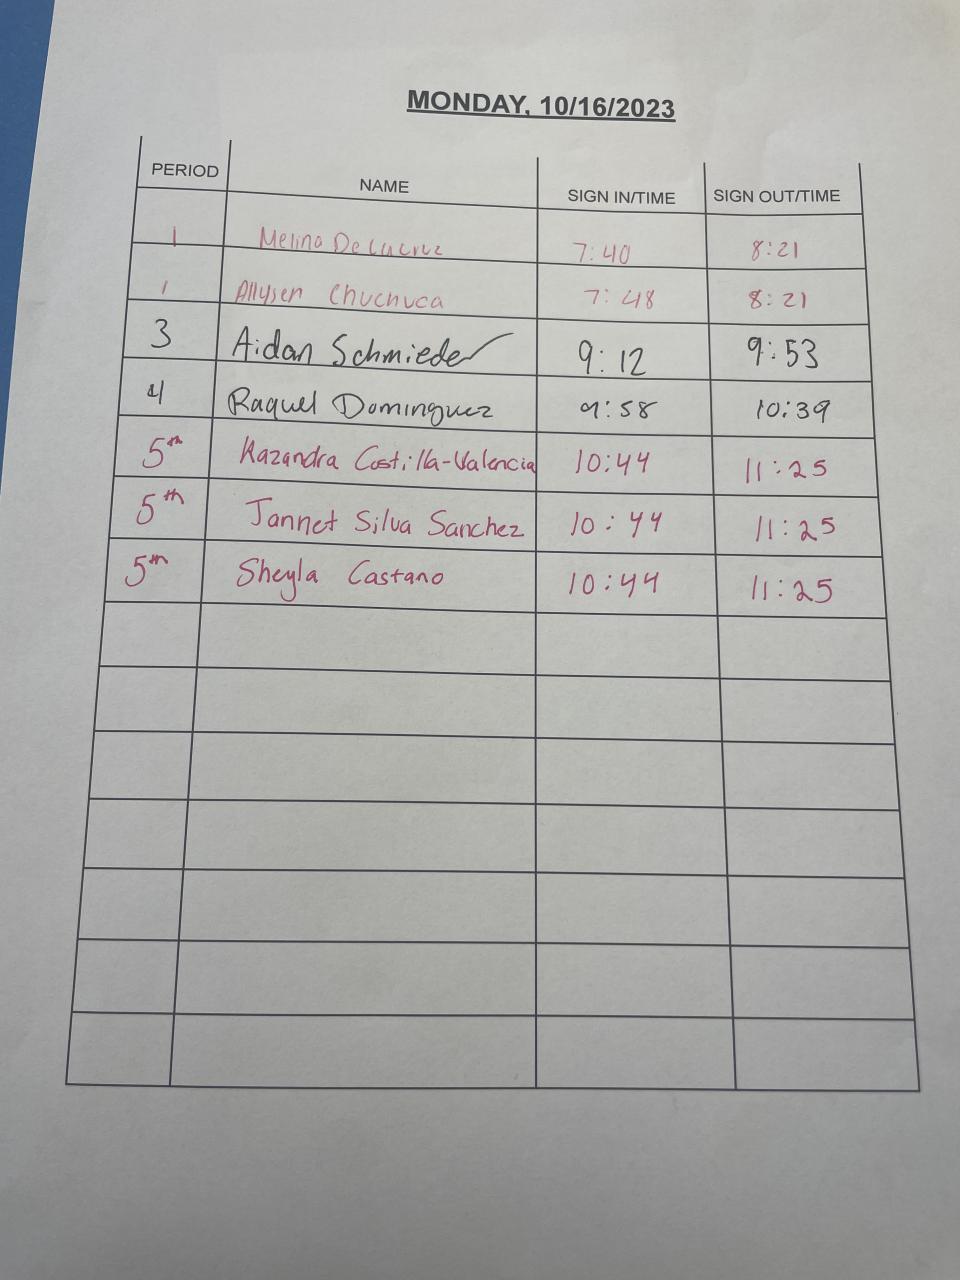 MONDAY, 10/16/2023
PERIOD NAME SIGN IN/TIME SIGN OUT/TIME
1 Melina De La Cruz 7:40 8:21
1 Allysen Chuchuca 7:48 8:21
3 Aidan Schmieder 9:12 9:53
4 Raquel Dominguez 9:58 10:39
5th Kazandra Costilla-Valencia 10:44 11:25
5th Jannet Silva Sanchez 10:44 11:25
5th Sheyla Castano 10:44 11:25